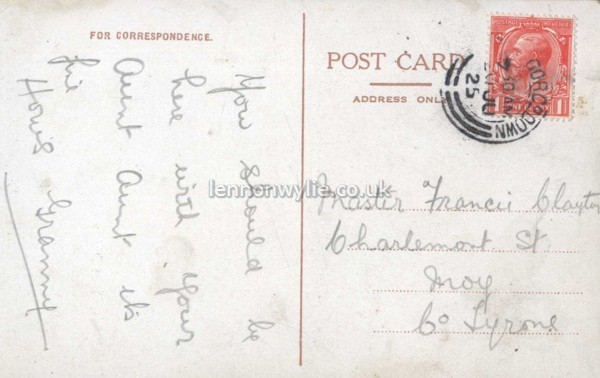 FOR CORRESPONDENCE.
You should be
here with your
Aunt Aunt
Hows Granny
POST CARD
ADDRESS ONLY
CO. DOWN
7 30 AM
JU
25
1 1
Master Francis Clayton
Charlemont St
Moy
Co Tyrone
lennonwylie.co.uk